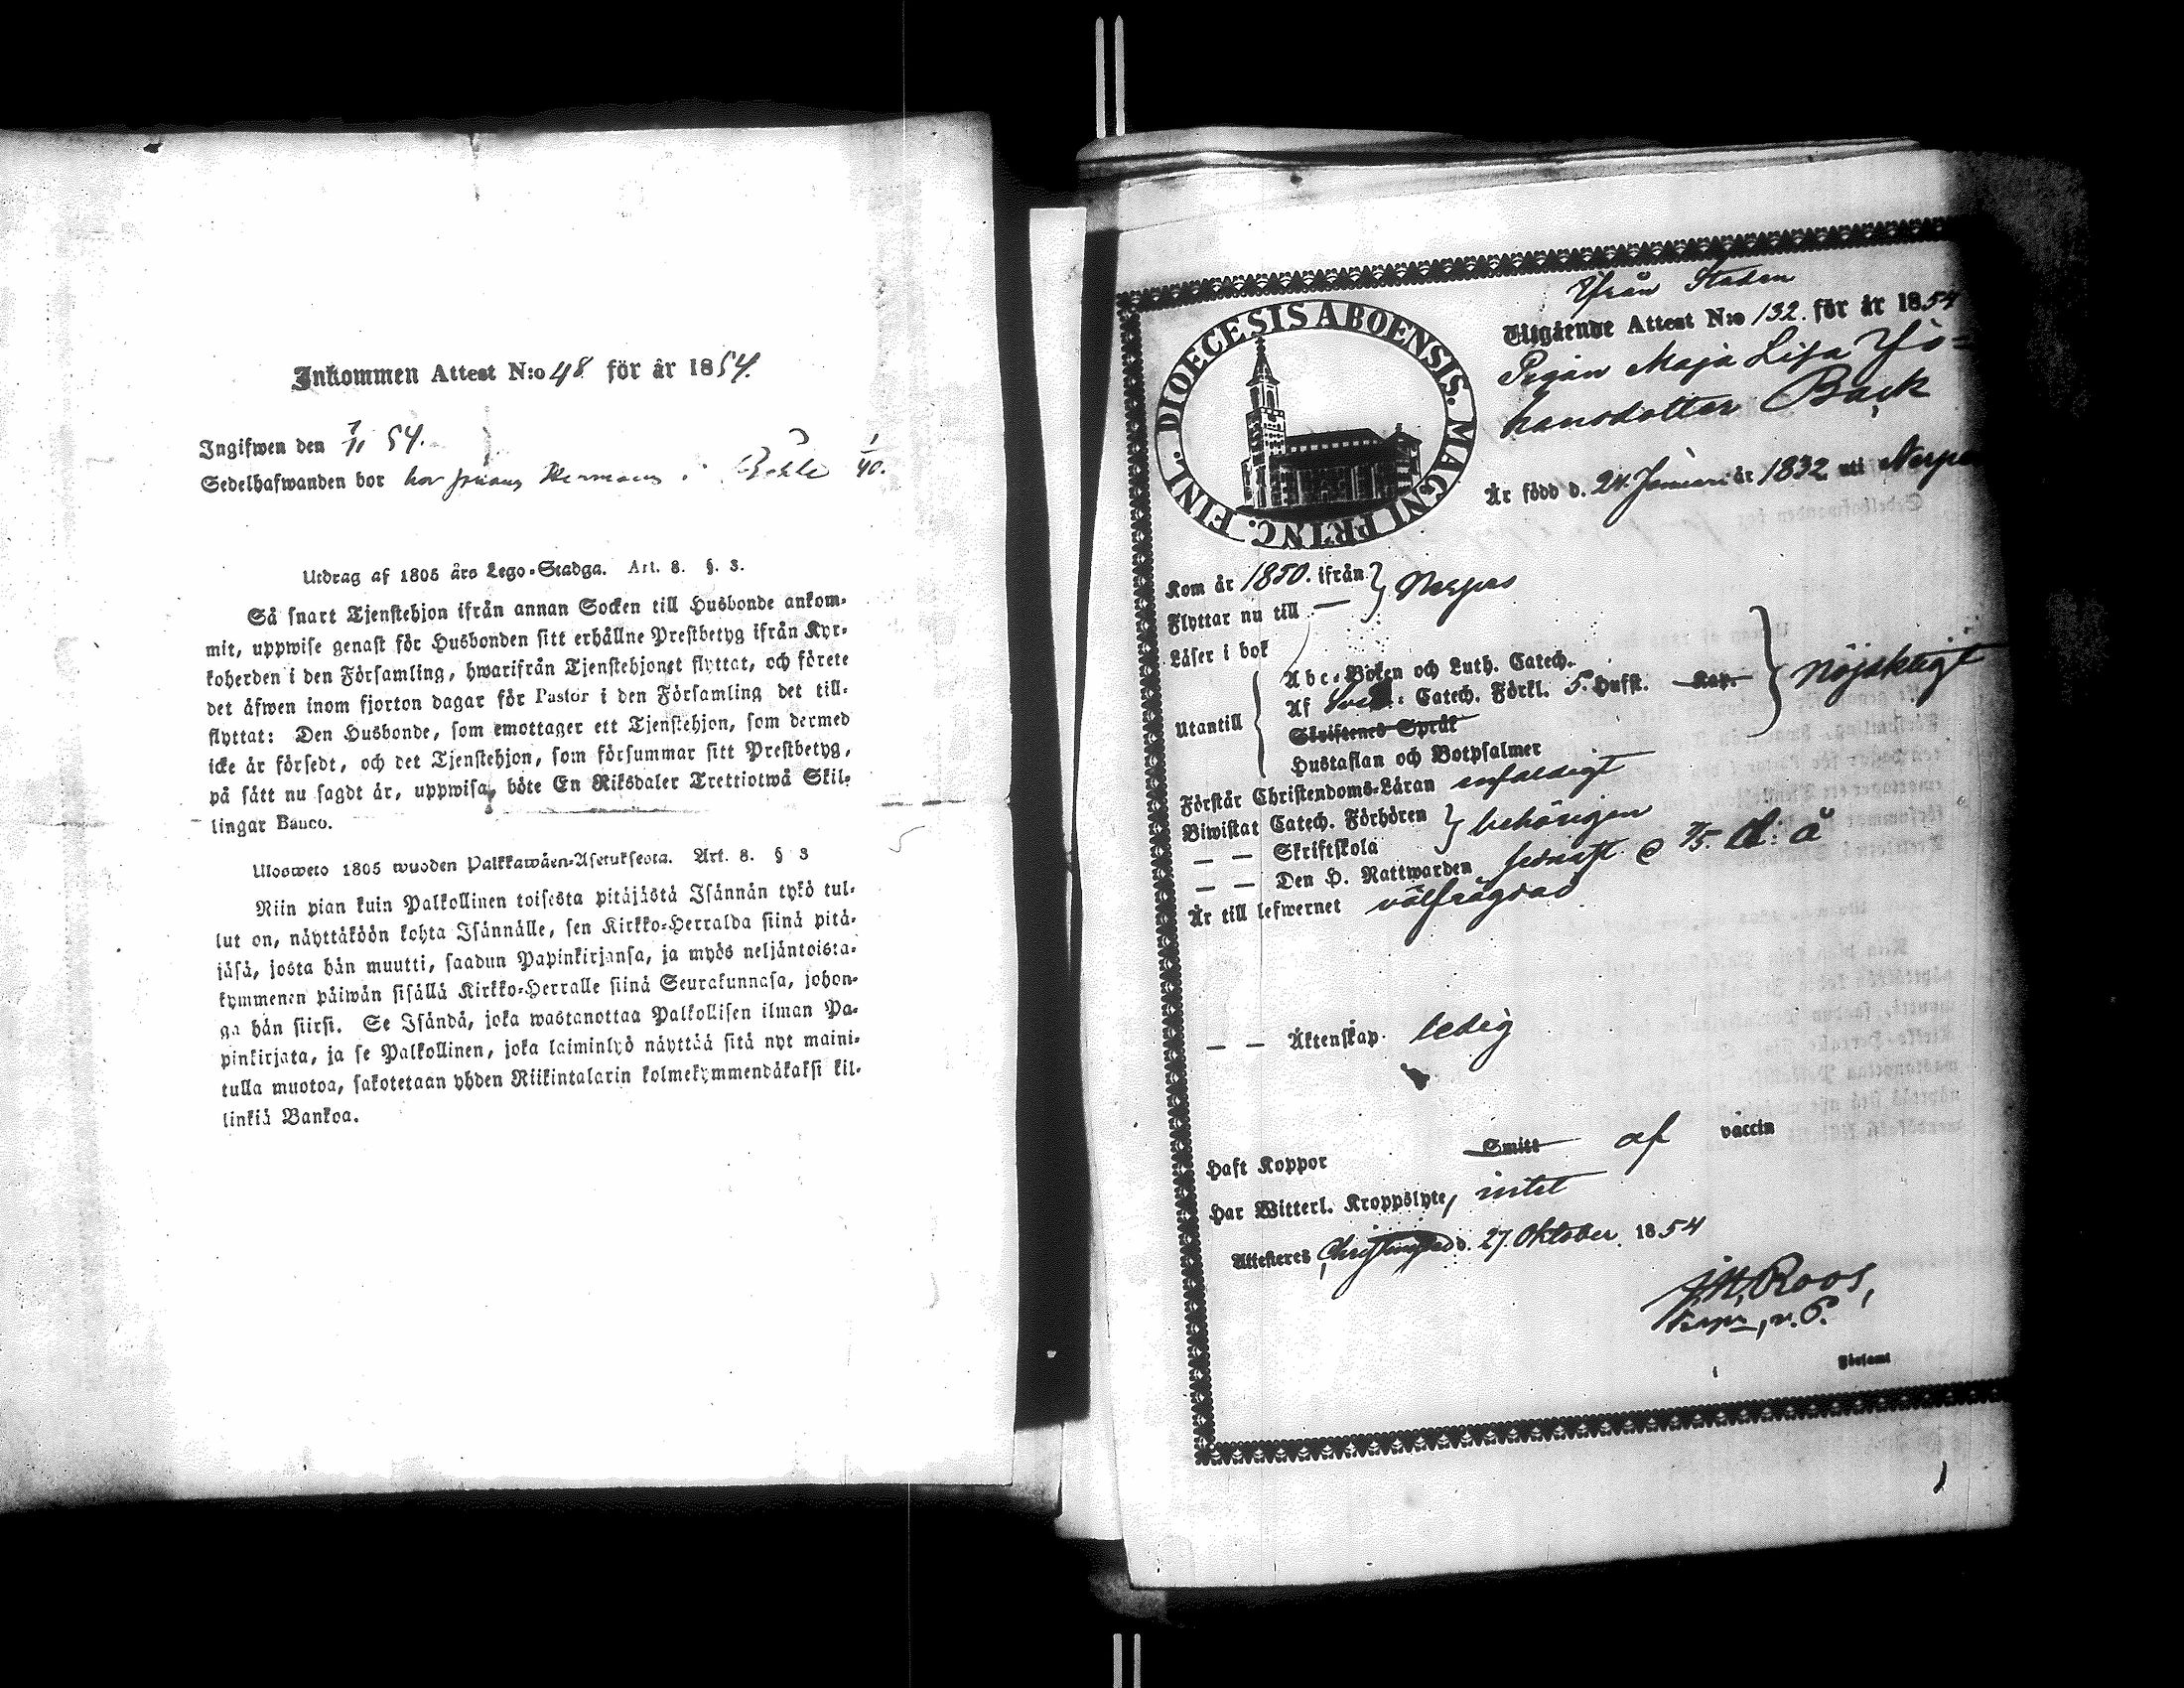 Inkommen Attest N:o 48 för år 1854.
Ingifwen den 7/11 54.
Sedelhafwanden bor hos
Utdrag af 1805 års Lego-Stadga. Art. 8. §. 3.
Så snart Tjenstehjon ifrån annan Socken till Husbonde ankom-
mit, uppwise genast för Husbonden sitt erhållne Prestbetyg ifrån Kyr-
koherden i den Församling, hwarifrån Tjenstehjonet flyttat, och förete
det äfwen inom fjorton dagar för Pastor i den Församling det till-
flyttat: Den Husbonde, som emottager ett Tjenstehjon, som dermed
icke är försedt, och det Tjenstehjon, som försummar sitt Prestbetyg,
på sätt nu sagdt är, uppwisa, böte En Riksdaler Trettiotwå Skil-
lingar Banco.
Ulosweto 1805 wuoden Palkkawäen-Asetuksesta. Art. 8. § 3
Niin pian kuin Palkollinen toisesta pitäjästä Isännän tykö tul-
lut on, näyttäköön kohta Isännälle, sen Kirkko-Herralda siinä pitä-
jäsä, josta hän muutti, saadun Papinkirjansa, ja myös neljäntoista-
kymmenen päiwän sisällä Kirkko-Herralle siinä Seurakunnasa, johon-
ga hän siirsi. Se Isändä, joka wastanottaa Palkollisen ilman Pa-
pinkirjata, ja se Palkollinen, joka laiminlyö näyttää sitä nyt maini-
tulla muotoa, sakotetaan yhden Riikintalarin kolmekymmendäkaksi kil-
linkiä Bankoa.
DIOECESIS ABOENSIS. MAGNI PRINC. FINL.
Ifrån Staden
Utgående Attest N:o 132. för år 1854
Pigan Maja Lisa Jo-
hansdotter Back
Är född d. 24 Januari år 1832 uti Nerpes
Kom år 1850. ifrån } Nerpes
Flyttar nu till —
Läser i bok
Abc-Boken och Luth. Catech.
Utantill { Af Sveb: Catech. Förkl. 5. Hufst. Kap. } Nöjaktigt
Skriftenes Språk
Hustaflan och Botpsalmer
Förstår Christendoms-Läran enfaldigt
Biwistat Catech. Förhören } behörigen
— — Skriftskola
— — Den H. Nattwarden senast d. 7/5. d. å
Är till lefwernet välfrägdad
— — Äktenskap. ledig
Haft Koppor Smitt af vaccin
Har Witterl. Kroppslyte, intet
Attesteres Christinestad d. 27 Oktober 1854
J.H. Roos,
v. P.
Församl